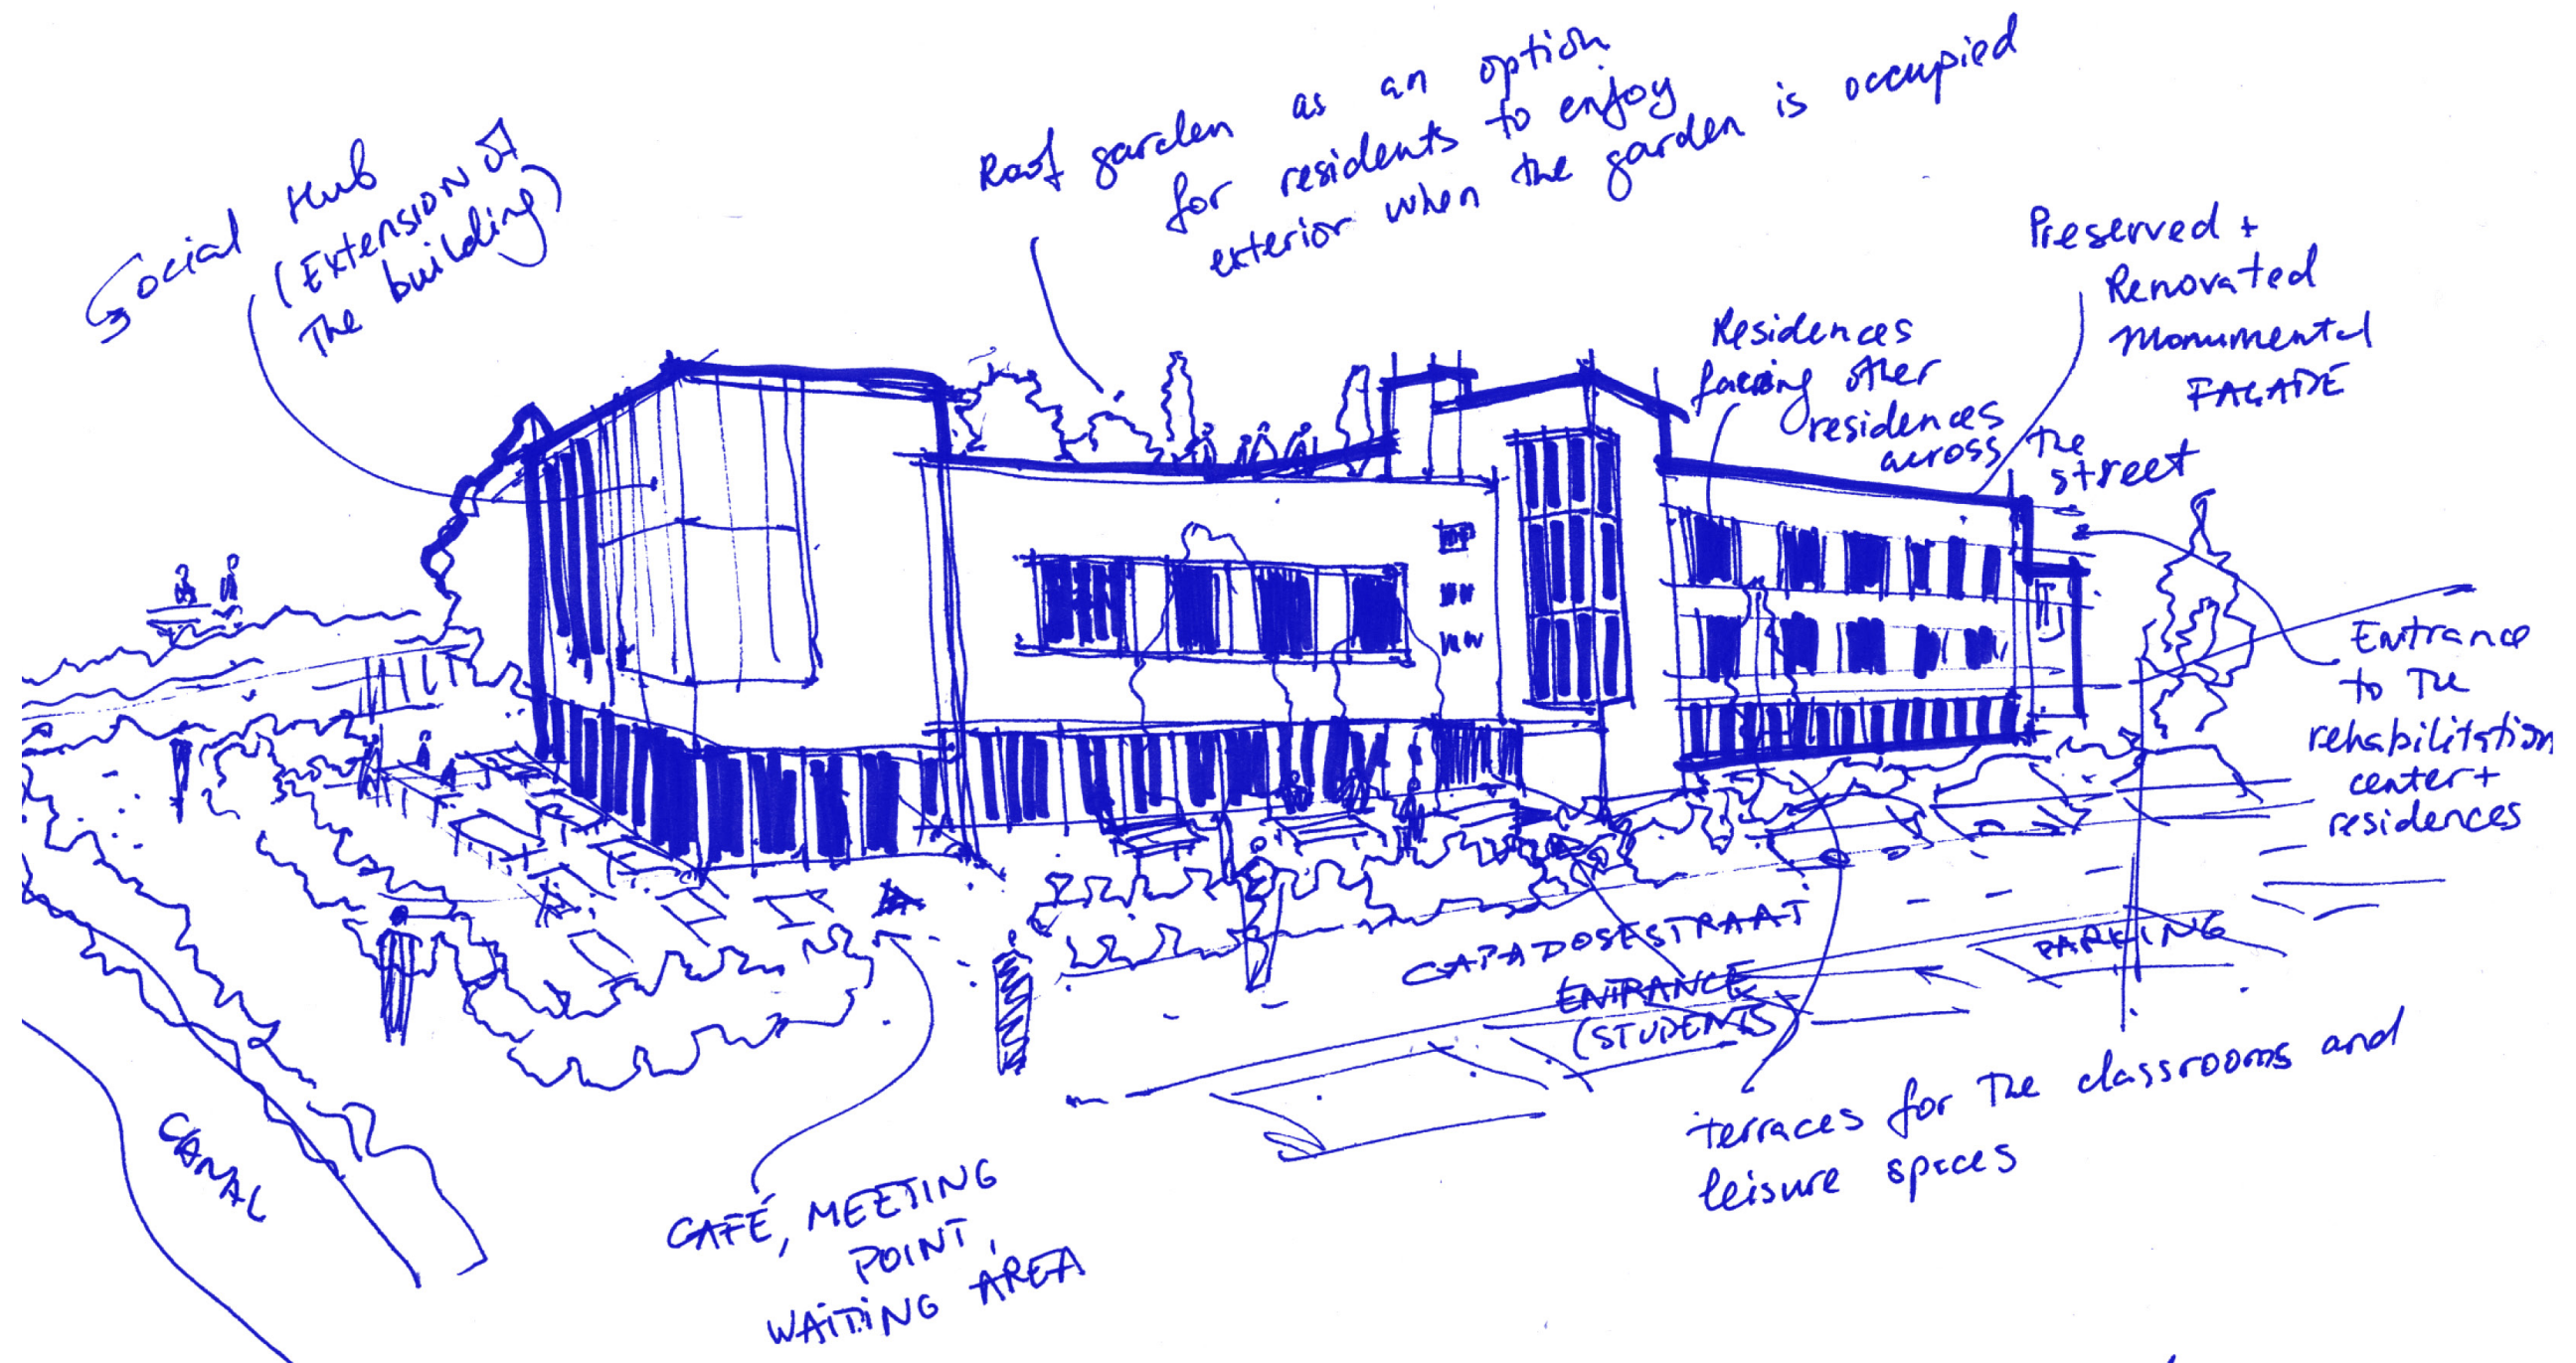 Social Hub
(Extension of
The building)
Roof garden as an option
for residents to enjoy
exterior when the garden is occupied
Preserved +
Renovated
Monumental
FAÇADE
Residences
facing other
residences
across the
street
Entrance
to The
rehabilitation
center +
residences
CAPADOSESTRAAT
PARKING
ENTRANCE
(STUDENTS)
terraces for The classrooms and
leisure spaces
CANAL
CAFÉ, MEETING
POINT,
WAITING AREA